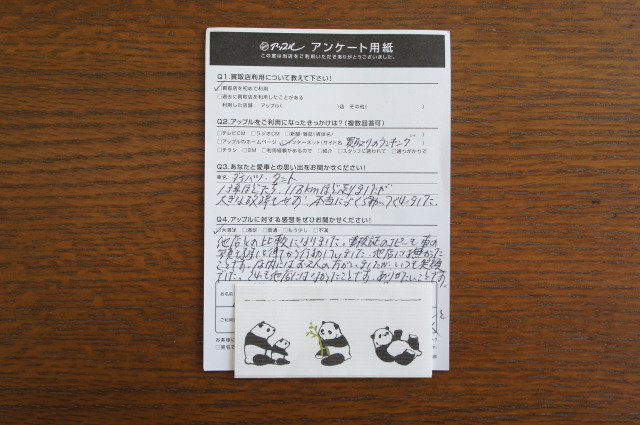 アップル アンケート用紙
この度は当店をご利用いただきありがとうございました。
Q1.買取店利用について教えて下さい!
買取店を初めて利用
□過去に買取店を利用したことがある
利用した店舗: アップル( )店 その他( )
Q2.アップルをご利用になったきっかけは?(複数回答可)
□テレビCM □ラジオCM □新聞・雑誌(媒体名/ )
□アップルのホームページ インターネット(サイト名 買取りのランキング )
□チラシ □DM □利用経験があるので □紹介 □スタッフに誘われて □通りがかりで
Q3.あなたと愛車との思い出をお聞かせください!
車名: ダイハツ・タント
13年ほどたち、11万kmほど走りましたが
大きな故障もせず、本当によく働いてくれました。
Q4.アップルに対する感想をぜひお聞かせください!
大満足 □満足 □普通 □もう少し □不満
他店との比較になりました。車検証のコピーも車の
写真も
ことです。店内にはお2人の方がいましたが、いつも笑顔
でした。これも他店にはなかったことです。ありがたいことです。
お名前
ご利用
お客様に
□匿名で